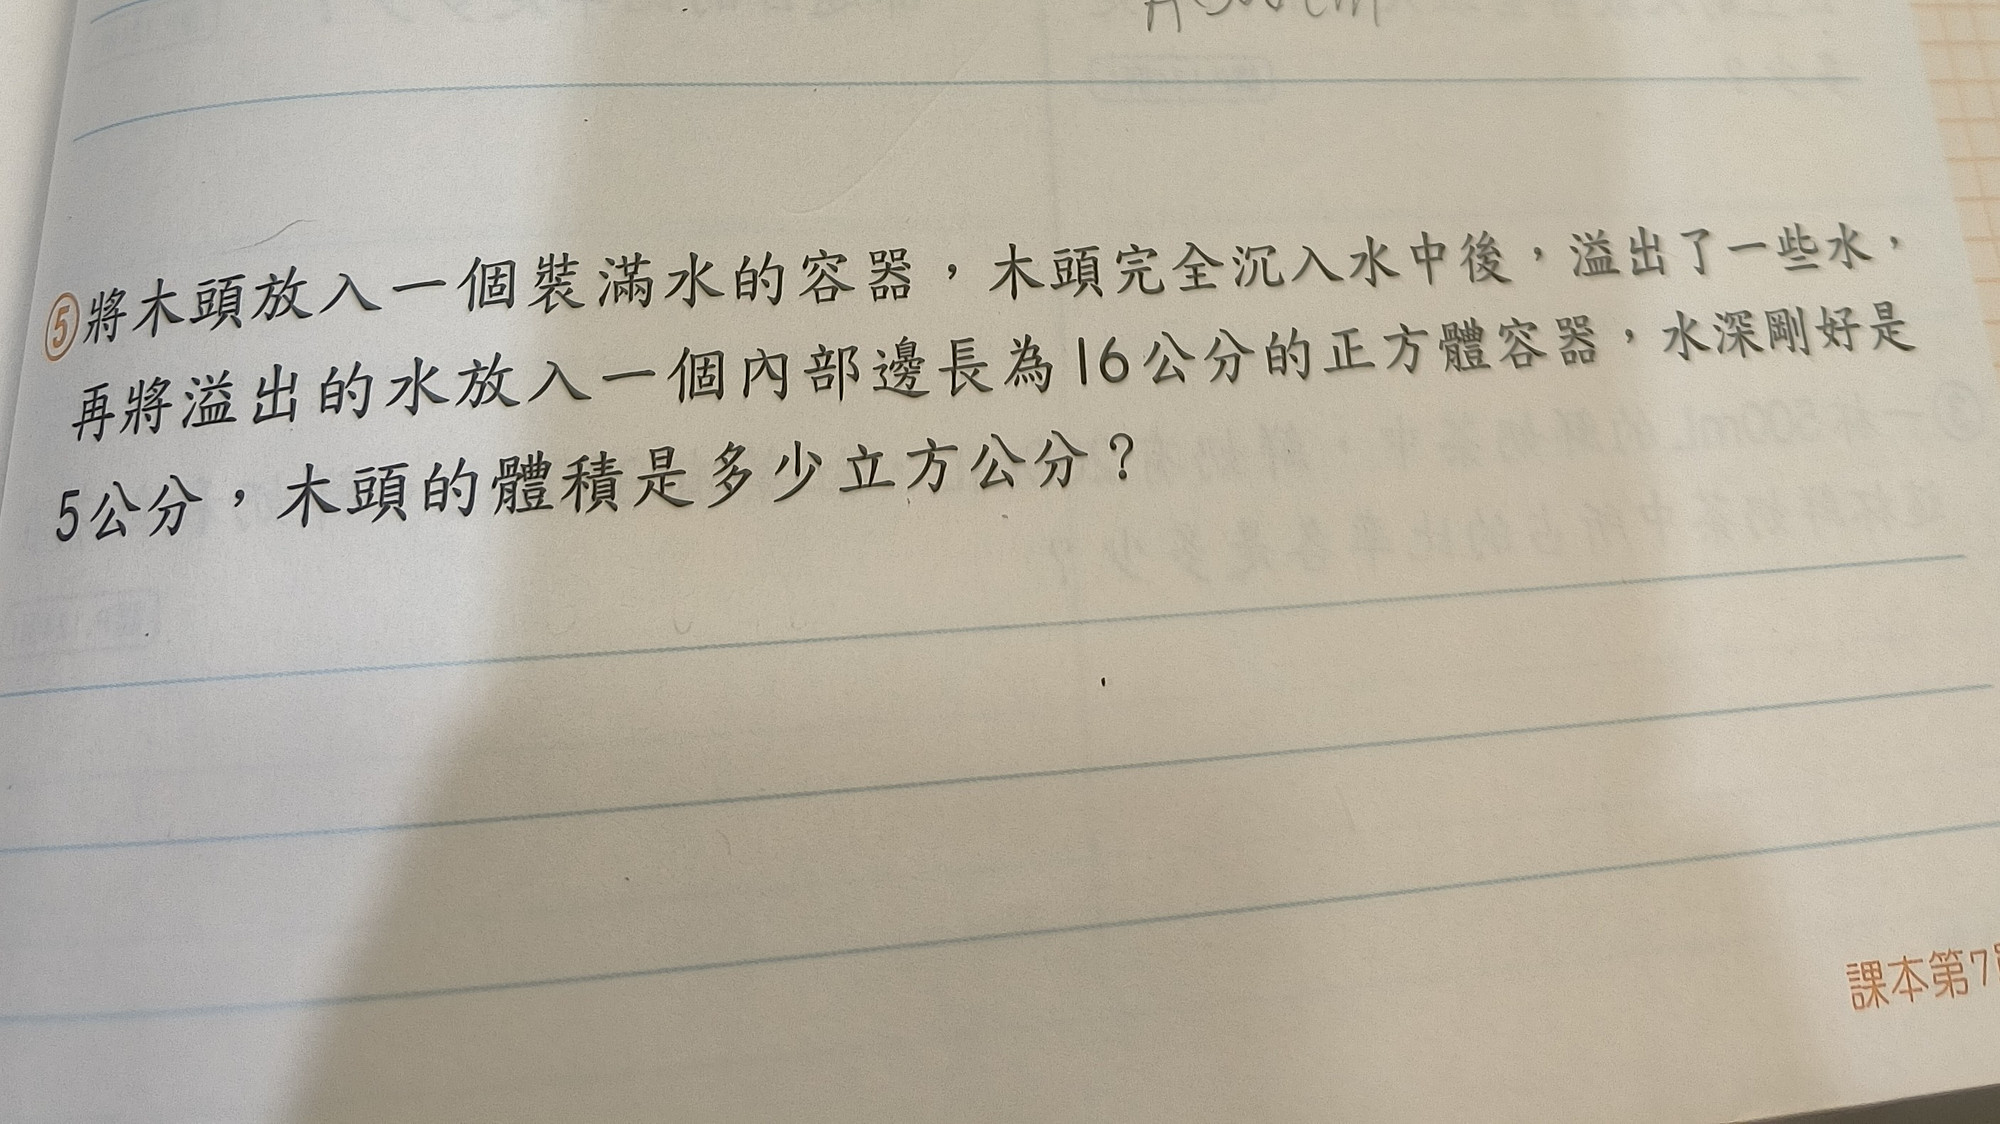 ⑤將木頭放入一個裝滿水的容器，木頭完全沉入水中後，溢出了一些水，
再將溢出的水放入一個內部邊長為16公分的正方體容器，水深剛好是
5公分，木頭的體積是多少立方公分？
課本第7